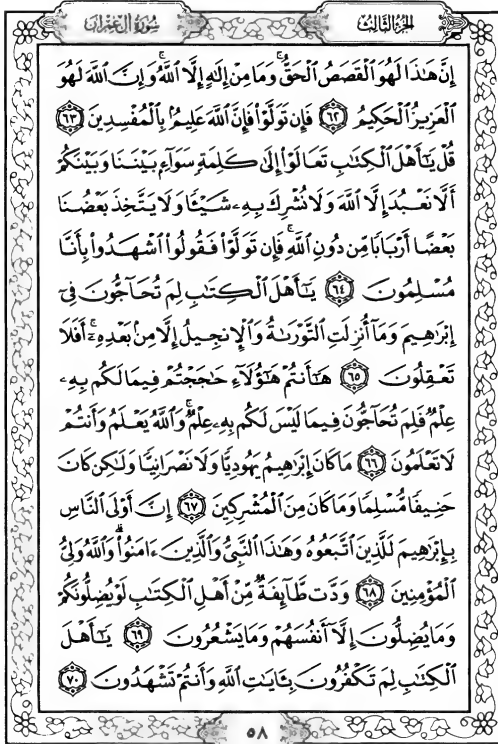 سُورَةُ آلِ عِمْرَانَ الجُزْءُ الثَّالِثُ
إِنَّ هَٰذَا لَهُوَ ٱلْقَصَصُ ٱلْحَقُّ ۚ وَمَا مِنْ إِلَٰهٍ إِلَّا ٱللَّهُ ۚ وَإِنَّ ٱللَّهَ لَهُوَ
ٱلْعَزِيزُ ٱلْحَكِيمُ ٦٢ فَإِن تَوَلَّوْا۟ فَإِنَّ ٱللَّهَ عَلِيمٌۢ بِٱلْمُفْسِدِينَ ٦٣
قُلْ يَٰٓأَهْلَ ٱلْكِتَٰبِ تَعَالَوْا۟ إِلَىٰ كَلِمَةٍ سَوَآءٍۭ بَيْنَنَا وَبَيْنَكُمْ
أَلَّا نَعْبُدَ إِلَّا ٱللَّهَ وَلَا نُشْرِكَ بِهِۦ شَيْـًٔا وَلَا يَتَّخِذَ بَعْضُنَا
بَعْضًا أَرْبَابًا مِّن دُونِ ٱللَّهِ ۚ فَإِن تَوَلَّوْا۟ فَقُولُوا۟ ٱشْهَدُوا۟ بِأَنَّا
مُسْلِمُونَ ٦٤ يَٰٓأَهْلَ ٱلْكِتَٰبِ لِمَ تُحَآجُّونَ فِىٓ
إِبْرَٰهِيمَ وَمَآ أُنزِلَتِ ٱلتَّوْرَىٰةُ وَٱلْإِنجِيلُ إِلَّا مِنۢ بَعْدِهِۦٓ ۚ أَفَلَا
تَعْقِلُونَ ٦٥ هَٰٓأَنتُمْ هَٰٓؤُلَآءِ حَٰجَجْتُمْ فِيمَا لَكُم بِهِۦ
عِلْمٌ فَلِمَ تُحَآجُّونَ فِيمَا لَيْسَ لَكُم بِهِۦ عِلْمٌ ۚ وَٱللَّهُ يَعْلَمُ وَأَنتُمْ
لَا تَعْلَمُونَ ٦٦ مَا كَانَ إِبْرَٰهِيمُ يَهُودِيًّا وَلَا نَصْرَانِيًّا وَلَٰكِن كَانَ
حَنِيفًا مُّسْلِمًا وَمَا كَانَ مِنَ ٱلْمُشْرِكِينَ ٦٧ إِنَّ أَوْلَى ٱلنَّاسِ
بِإِبْرَٰهِيمَ لَلَّذِينَ ٱتَّبَعُوهُ وَهَٰذَا ٱلنَّبِىُّ وَٱلَّذِينَ ءَامَنُوا۟ ۗ وَٱللَّهُ وَلِىُّ
ٱلْمُؤْمِنِينَ ٦٨ وَدَّت طَّآئِفَةٌ مِّنْ أَهْلِ ٱلْكِتَٰبِ لَوْ يُضِلُّونَكُمْ
وَمَا يُضِلُّونَ إِلَّآ أَنفُسَهُمْ وَمَا يَشْعُرُونَ ٦٩ يَٰٓأَهْلَ
ٱلْكِتَٰبِ لِمَ تَكْفُرُونَ بِـَٔايَٰتِ ٱللَّهِ وَأَنتُمْ تَشْهَدُونَ ٧٠
٥٨